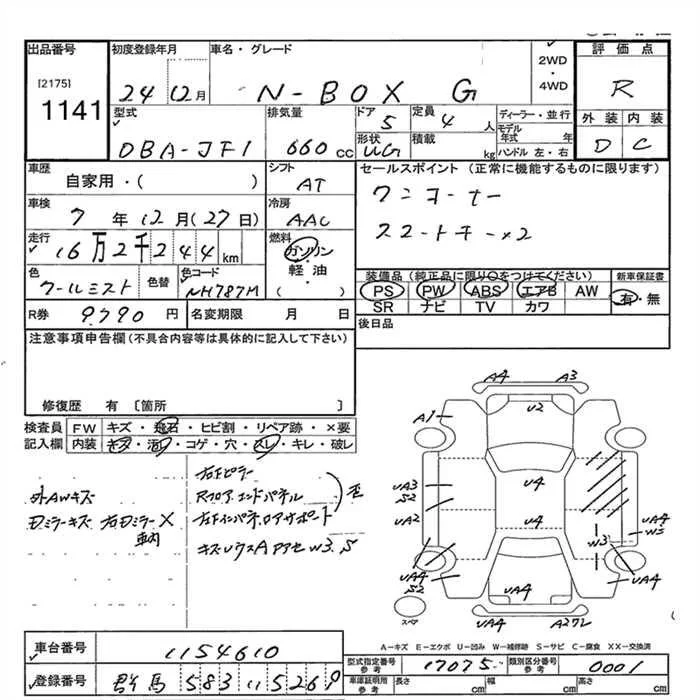 出品番号
[2175]
1141
初度登録年月
24 12月
車名・グレード
N-BOX G
2WD
・
4WD
評価点
R
外装 内装
D C
型式
DBA-JF1
排気量
660 cc
ドア
5
定員
4 人
形状
UG
積載
kg
ディーラー・並行
モデル年式 年
ハンドル 左・右
車歴
自家用・( )
シフト
AT
セールスポイント (正常に機能するものに限ります)
ワンオーナー
スマートキー×2
車検
7年12月(27日)
冷房
AAC
走行
16万2千244km
燃料
ガソリン
・
軽油
・
( )
色
クールミスト
色替
色コード
NH787M
装備品 (純正品に限り○をつけてください)
PS PW ABS エアB AW
SR ナビ TV カワ
新車保証書
有・無
R券 9790円
名変期限 月 日
後日品
注意事項申告欄 (不具合内容等は具体的に記入して下さい)
修復歴 有 〔箇所 〕
検査員記入欄
FW キズ・飛石・ヒビ割・リペア跡・×要
内装 キズ・汚レ・コゲ・穴・スレ・キレ・破レ
外AWキズ
右ドミラー×
車内
右Fピラー
Rフロア、エンドパネル
A4 A3
U2
A1
UA3
S2
UA2
U4
U4
UA4
W3
W3
UA4
S2
UA4
UA4
UA4
スペア
A-キズ E-エクボ U-凹み W-補修跡 S-サビ C-腐食 XX-交換済
車台番号
1154610
登録番号
群馬 583 115269
型式指定番号
参考
17075
類別区分番号
参考
0001
車庫証明用
参考
長さ cm
幅 cm
高さ cm